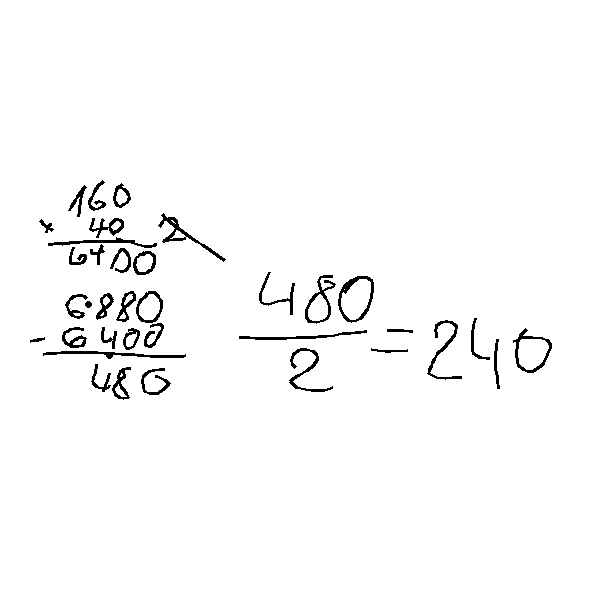 160
× 40
6400
6.880
- 6.400
480
480
2
= 240